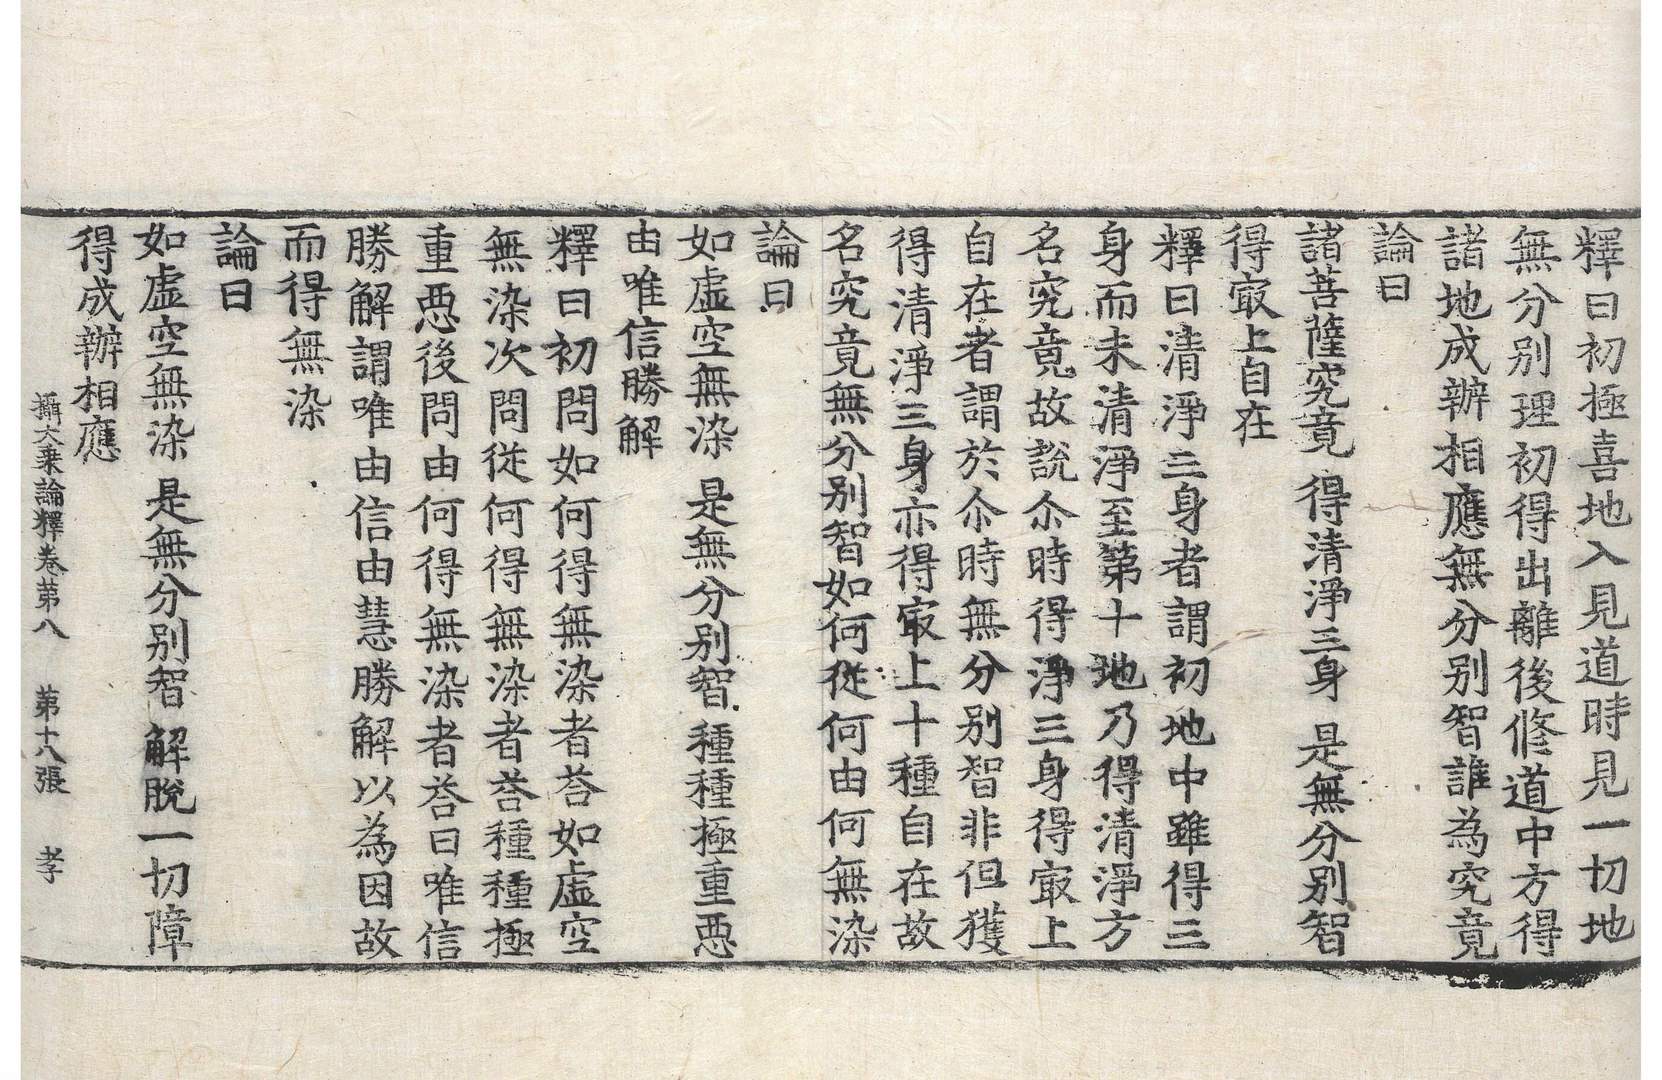 釋曰初極喜地入見道時見一切地
無分別理初得出離後修道中方得
諸地成辦相應無分別智誰為究竟
論曰
諸菩薩究竟 得清淨三身 是無分別智
得㝡上自在
釋曰清淨三身者謂初地中雖得三
身而未清淨至第十地乃得清淨方
名究竟故說尒時得淨三身得㝡上
自在者謂於尒時無分別智非但獲
得清淨三身亦得㝡上十種自在故
名究竟無分別智如何從何由何無染
論曰
如虛空無染 是無分別智 種種極重惡
由唯信勝解
釋曰初問如何得無染者荅如虛空
無染次問從何得無染者荅種種極
重惡後問由何得無染者荅曰唯信
勝解謂唯由信由慧勝解以為因故
而得無染
論曰
如虛空無染 是無分別智 解脫一切障
得成辦相應
攝大乘論釋卷第八 第十八張 孝